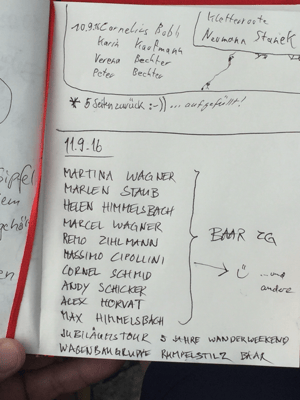 10.9.16 Cornelius Bobb
Karin Kaufmann
Verena Bechter
Peter Bechter
Kletterroute
Neumann Stanek
* 5 Seiten zurück :-)) ... aufgefüllt!
11.9.16
MARTINA WAGNER
MARLEN STAUB
HELEN HIMMELSBACH
MARCEL WAGNER
REMO ZIHLMANN
MASSIMO CIPOLLINI
CORNEL SCHMID
ANDY SCHICKER
ALEX HORVAT
MAX HIMMELSBACH
BAAR ZG
... und
andere
JUBILÄUMSTOUR 5 JAHRE WANDERWEEKEND
WAGENBAUGRUPPE RUMPELSTILZ BAAR
Gipfel